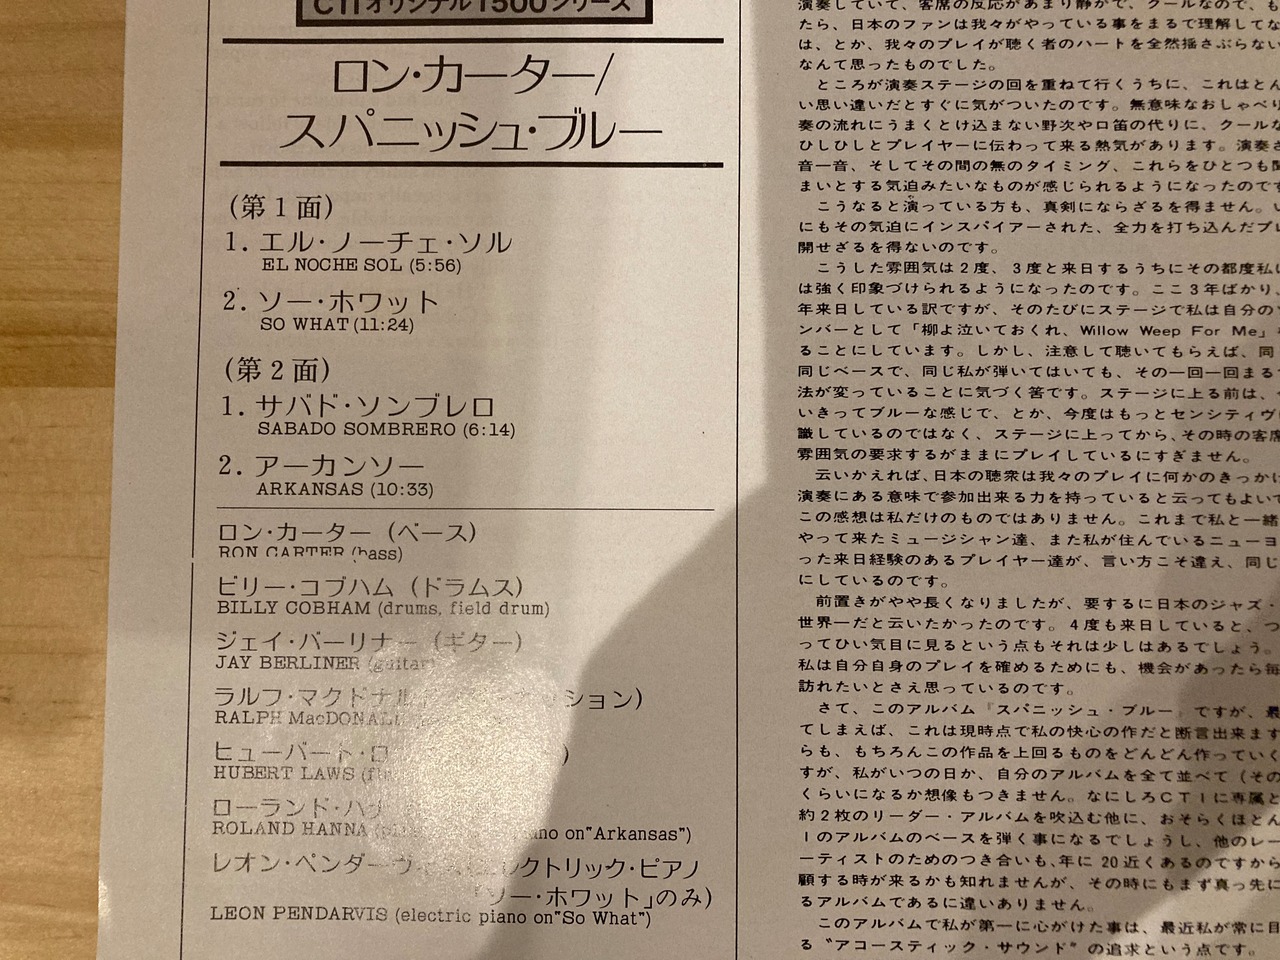 CTIオリジナル1500シリーズ
ロン・カーター/
スパニッシュ・ブルー
(第1面)
1. エル・ノーチェ・ソル
EL NOCHE SOL (5:56)
2. ソー・ホワット
SO WHAT (11:24)
(第2面)
1. サバド・ソンブレロ
SABADO SOMBRERO (6:14)
2. アーカンソー
ARKANSAS (10:33)
ロン・カーター (ベース)
RON CARTER (bass)
ビリー・コブハム (ドラムス)
BILLY COBHAM (drums, field drum)
ジェイ・バーリナー (ギター)
JAY BERLINER (guitar)
ラルフ・マクドナル ション)
RALPH MacDONALD
ヒューバート・ロ )
HUBERT LAWS
ローランド・ハナ
ROLAND HANNA on"Arkansas")
レオン・ペンダーヴ レクトリック・ピアノ
「ソー・ホワット」のみ)
LEON PENDARVIS (electric piano on"So What")
演奏していて、客席の反応があまり静かで、クールなので、も
たら、日本のファンは我々がやっている事をまるで理解してな
は、とか、我々のプレイが聴く者のハートを全然揺さぶらない
なんて思ったものでした。
ところが演奏ステージの回を重ねて行くうちに、これはとん
い思い違いだとすぐに気がついたのです。無意味なおしゃべり
奏の流れにうまくとけ込まない野次や口笛の代りに、クールな
ひしひしとプレイヤーに伝わって来る熱気があります。演奏さ
音一音、そしてその間の無のタイミング、これらをひとつも聞
まいとする気迫みたいなものが感じられるようになったのです
こうなると演っている方も、真剣にならざるを得ません。い
にもその気迫にインスパイアーされた、全力を打ち込んだプレ
開せざるを得ないのです。
こうした雰囲気は2度、3度と来日するうちにその都度私に
は強く印象づけられるようになったのです。ここ3年ばかり、
年来日している訳ですが、そのたびにステージで私は自分の
ンバーとして「柳よ泣いておくれ、Willow Weep For Me」を
ることにしています。しかし、注意して聴いてもらえば、同
同じベースで、同じ私が弾いてはいても、その一回一回まる
法が変っていることに気づく筈です。ステージに上る前は、
いきってブルーな感じで、とか、今度はもっとセンシティヴに
識しているのではなく、ステージに上ってから、その時の客席
雰囲気の要求するがままにプレイしているにすぎません。
云いかえれば、日本の聴衆は我々のプレイに何かのきっかけ
演奏にある意味で参加出来る力を持っていると云ってもよいで
この感想は私だけのものではありません。これまで私と一緒
やって来たミュージシャン達、また私が住んでいるニューヨ
った来日経験のあるプレイヤー達が、言い方こそ違え、同じ
にしているのです。
前置きがやや長くなりましたが、要するに日本のジャズ・
世界一だと云いたかったのです。4度も来日していると、つ
ってひい気目に見るという点もそれは少しはあるでしょう。
私は自分自身のプレイを確めるためにも、機会があったら毎
訪れたいとさえ思っているのです。
さて、このアルバム『スパニッシュ・ブルー』ですが、最
てしまえば、これは現時点で私の快心の作だと断言出来ます
らも、もちろんこの作品を上回るものをどんどん作っていく
すが、私がいつの日か、自分のアルバムを全て並べて(その
くらいになるか想像もつきません。なにしろCTIに専属と
約2枚のリーダー・アルバムを吹込む他に、おそらくほとん
Iのアルバムのベースを弾く事になるでしょうし、他のレー
ーティストのためのつき合いも、年に20近くあるのですから
顧する時が来るかも知れませんが、その時にもまず真っ先に
るアルバムであるに違いありません。
このアルバムで私が第一に心がけた事は、最近私が常に目
る〝アコースティック・サウンド〟の追求という点です。